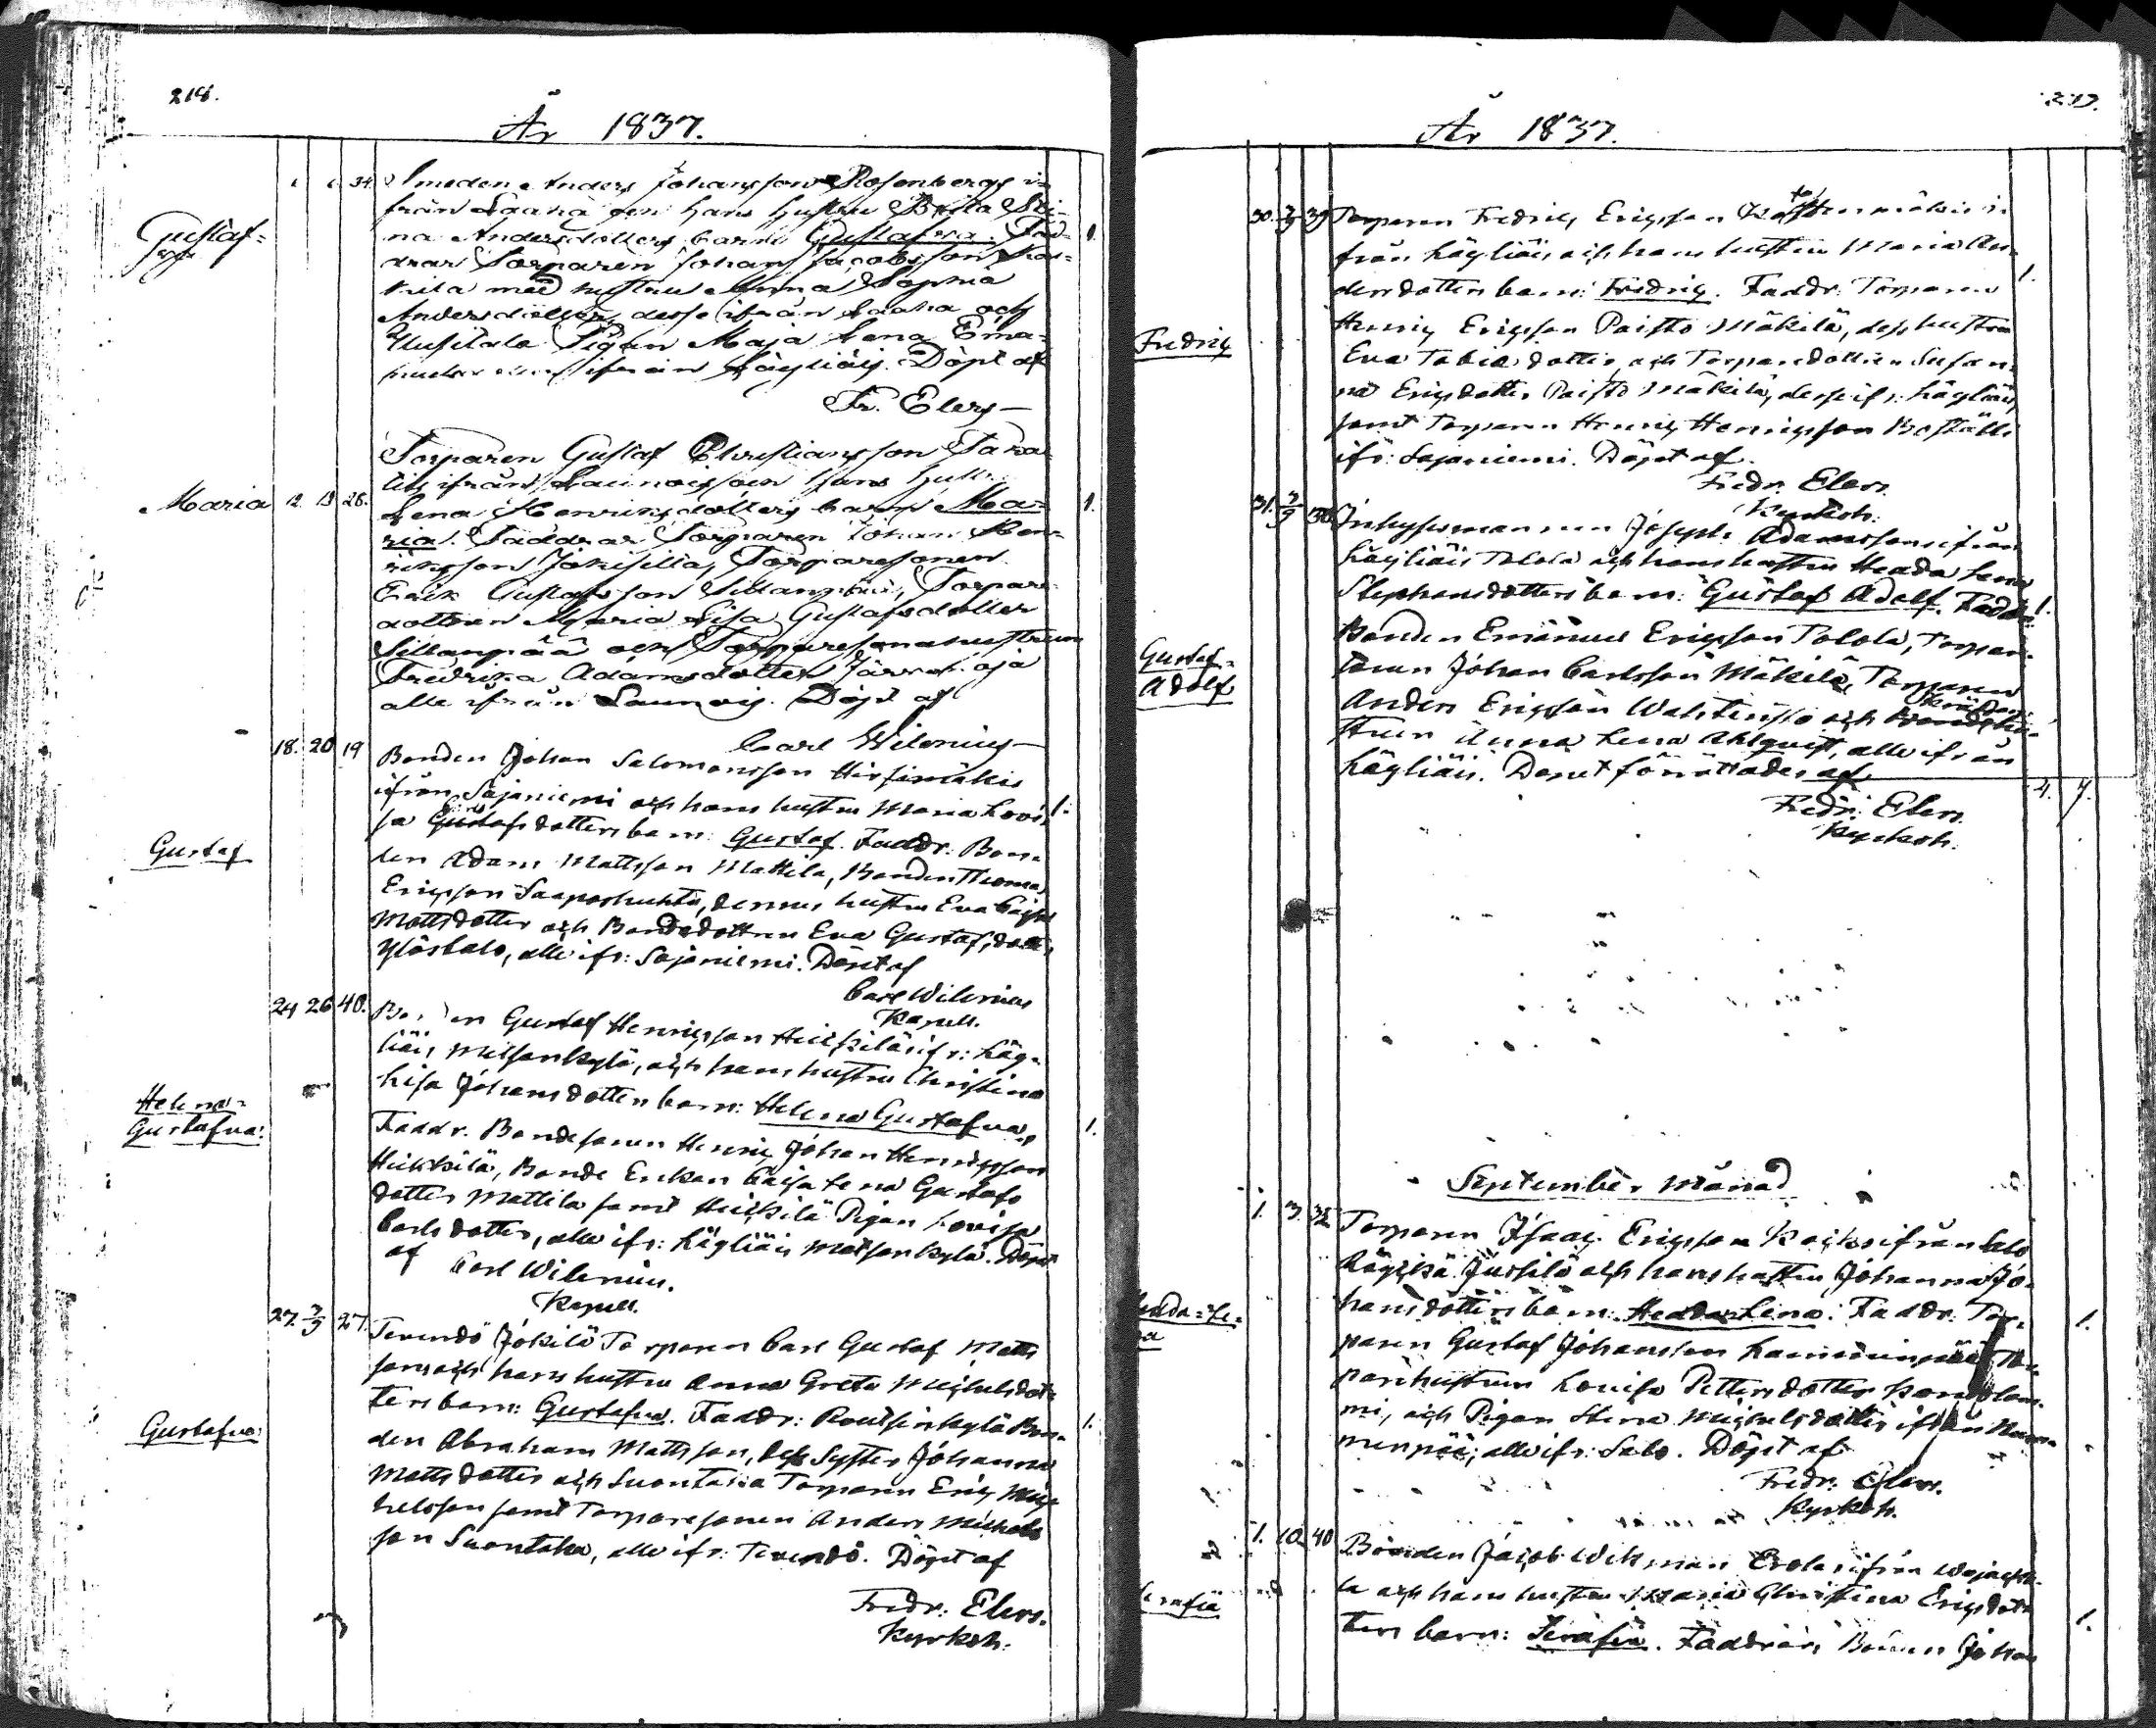 218.
År 1837.
Gustaf=
va
34. Smeden Anders Johansson Rosenbergs i=
från Saana och hans hustru Brita Sti=
na Andersdotters barn: Gustafva. Fad= 1.
drar Torparen Johan Jacobsson
kila med hustru Anna Sophia
Andersdotter, desse ifrån Saana och
Uusitalo Pigan Maja Lena Ema=
ifrån Kägliäis. Döpt af
Fr. Elers
Torparen Gustaf Christiansson
ifrån Launois och hans hustru
Maria 12 13 28. Lena Henricsdotters barn Ma= 1.
ria. Faddrar Torparen Johan Hen=
ricsson Jokisilla, Torparesonen
Erik Gustafsson Sillanpää, Torpare
dottren Maria Lisa Gustafsdotter
Sillanpää och Torparesonahustrun
Fredrika Adamsdotter Järvenoja
alla ifrån Launois. Döpt af
Carl Wilenius
18. 20 19 Bonden Johan Salomonsson Hirsimäkis
ifrån Sajaniemi och hans hustru Maria Lovi= 1.
sa Gustafsdotters barn: Gustaf. Faddr. Bon=
Gustaf
den Adam Mattsson Mattila, Bonden Thomas
Ericsson Saaporhuhta, dennes hustru Eva Cajsa
Mattsdotter och Bondedottren Eva Gustafsdotter
Ylöstalo, alle ifr: Sajaniemi. Döpt af
Carl Wilenius
Kapell.
24 26 40. Bonden Gustaf Henricsson Heickiläs ifr: Läg=
liäis Metsänkylä, och hans hustru Christina
Lisa Johansdotters barn: Helena Gustafva, 1.
Helena=
Gustafva:
Faddr. Bondesonen Henric Johan Henricsson
Heickilä, Bonde Enkan Caisa Lena Gustafs
dotter Mattila samt Heickilä Pigan Lovisa
Carlsdotter, alle ifr: Lägliäis Metsänkylä. Döpt
af Carl Wilenius.
Kapell.
27. 2/9 27. Terundö Jokilä Torparen Carl Gustaf Matts
sons och hans hustru Anna Greta Michelsdot=
ters barn: Gustafva. Faddr: Routsinkylä Bon= 1.
Gustafva:
den Abraham Mattsson, dess Syster Johanna
Mattsdotter och Suontaka Torparen Eric Mich
helsson samt Torparesonen Anders Michels
son Suontaka, alle ifr: Terundö. Döpt af
Fredr: Elers.
Kyrkoh:
År 1837.
30. 2/9 39 Torparen Fredric Ericsson
från Lägliäis och hans hustru Maria An=
dersdotters barn: Fredric. Faddr. Torparen 1.
Fredric
Henric Ericsson Paisto Mäkilä, dess hustru
Eva Tobiasdotter, och Torparedottren Susan=
na Ericsdotter Paisto Mäkilä, desse ifr: Lägliäis,
samt Torparen Henric Henricsson Beställe
ifr: Sajaniemi. Döpt af
Fredr. Elers.
Kyrkoh:
31. 2/9 38. Inhyseman nen Joseph Adamssons ifrån
Lägliäis Tolola och hans hustru Hedda Lena
Stephansdotters barn: Gustaf Adolf. Faddr: 1.
Gustaf=
Adolf
Bonden Emanuel Ericsson Tolola, Torpare=
sonen Johan Carlsson Mäkilä, Torparen
Anders Ericsson och
strun Anna Lena Ahlqvist, alle ifrån
Lägliäis. Dopet förrättades af 4. 7.
Fredr: Elers.
Kyrkoh.
September månad
1. 3. 32 Torparen Isaac Ericsson ifrån Salo
Jussila och hans hustru Johanna Jo=
hansdotters barn: Hedda Lena. Faddr. Tor= 1.
paren Gustaf Johansson
parehustrun Lovisa Pettersdotter
mi, och Pigan Stina Michelsdotter ifrån
alle ifr: Salo. Döpt af
Fredr. Elers.
Kyrkoh.
1. 10. 40 Bonden Jacob Wikman Erolas ifrån
la och hans hustru Maria Christina Ericsdot=
ters barn: Serafia. Faddrar: Bonden Johan 1.